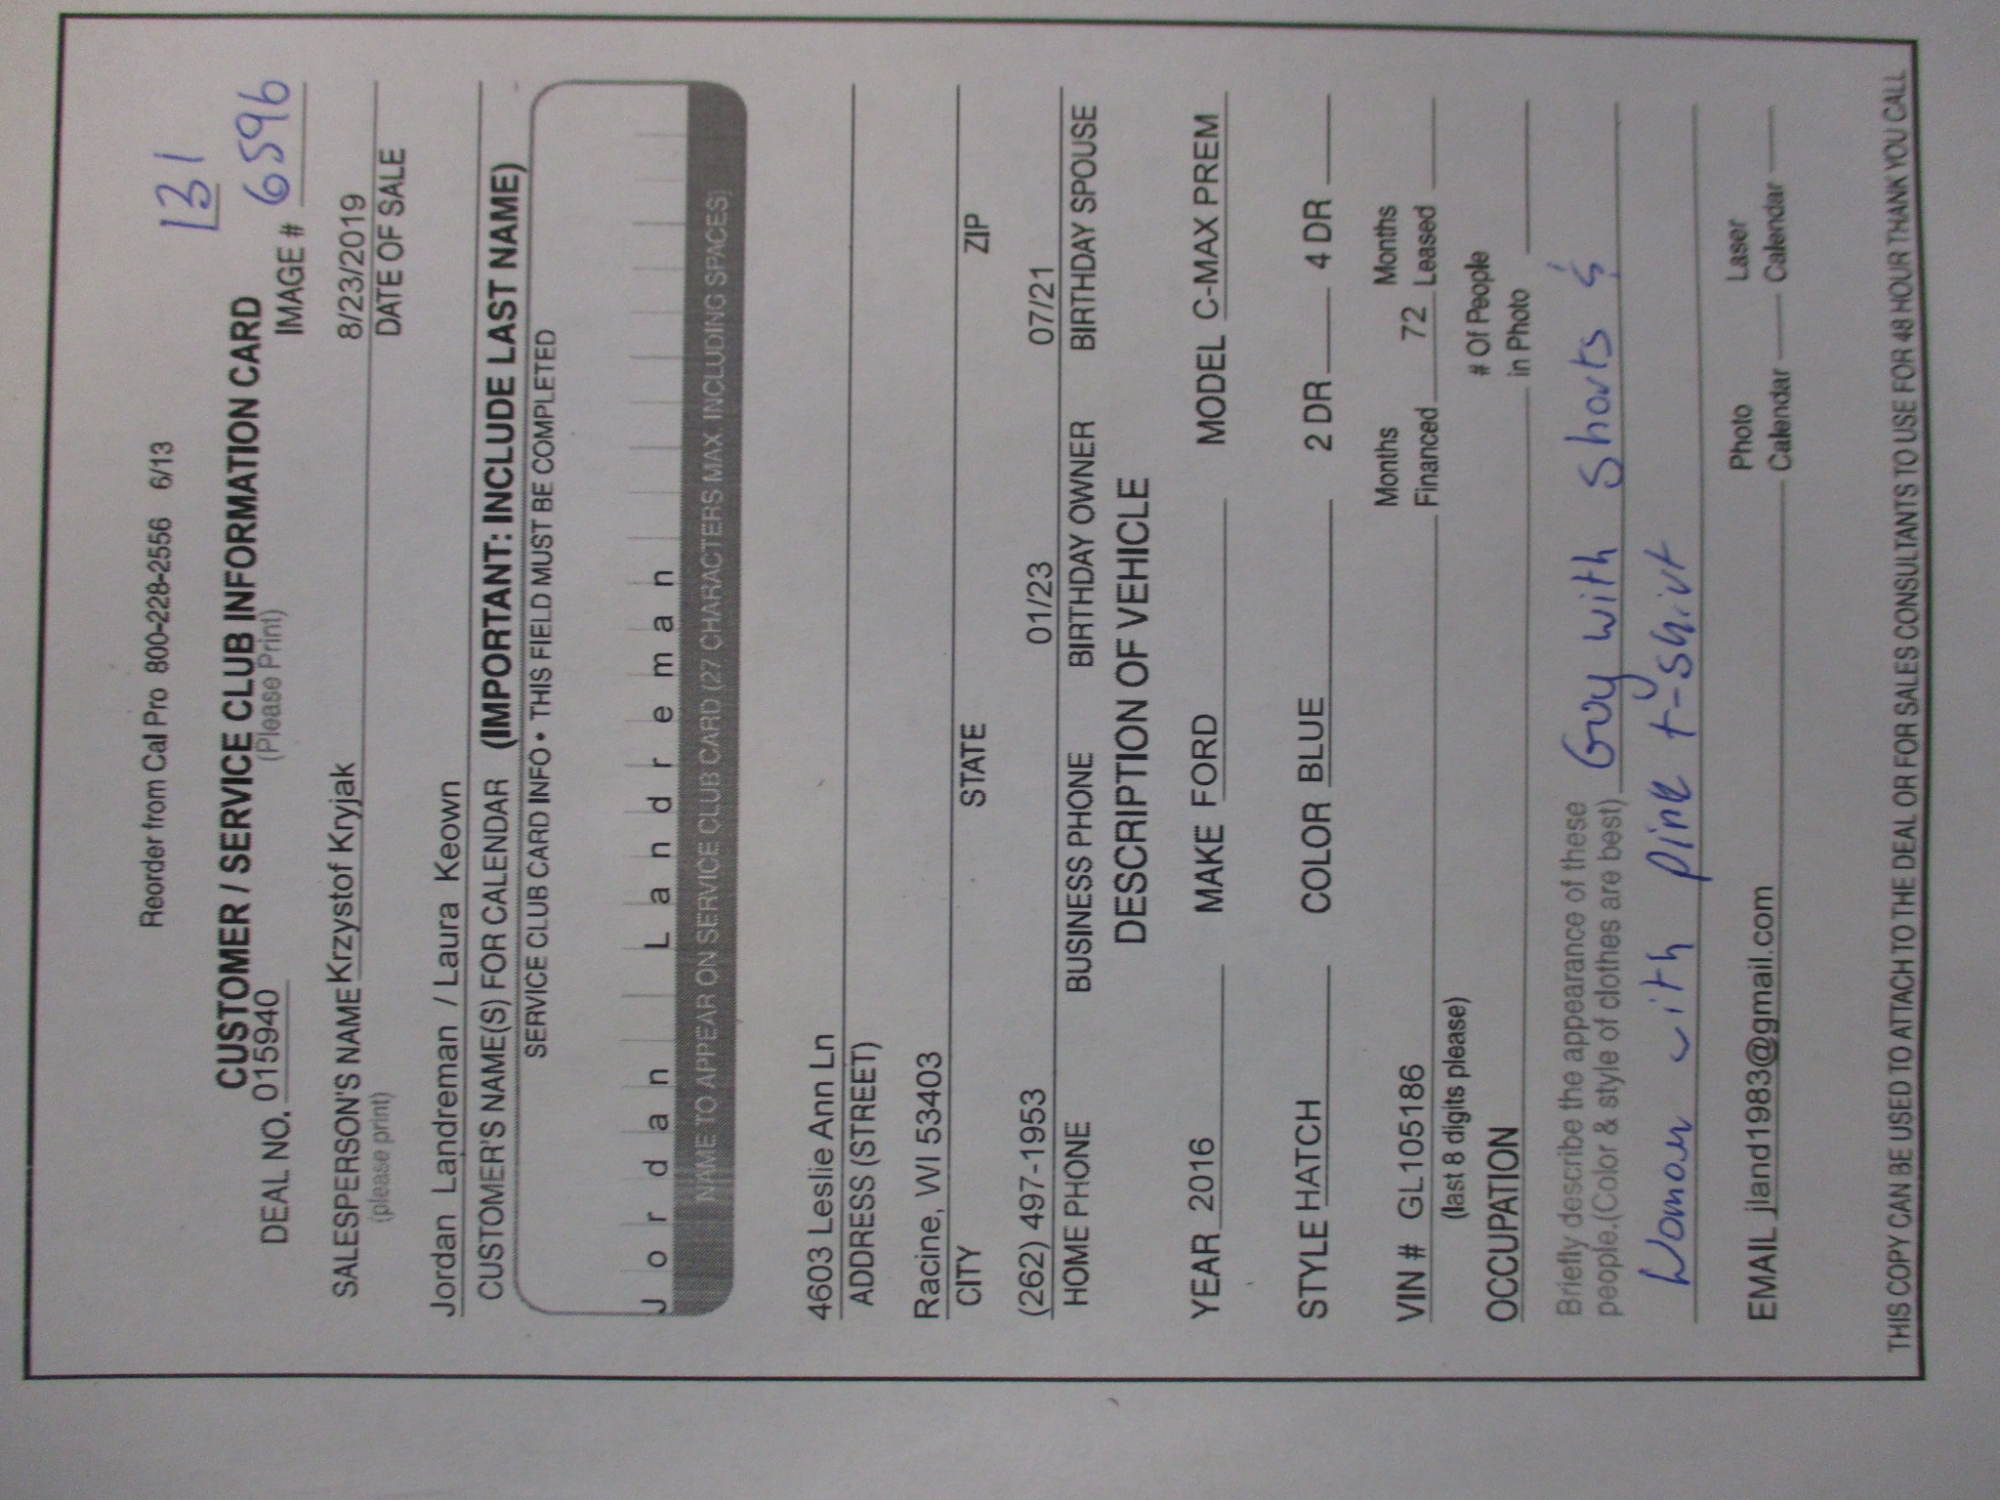 Reorder from Cal Pro 800-228-2556 6/13
131
CUSTOMER / SERVICE CLUB INFORMATION CARD
DEAL NO. 015940 (Please Print) IMAGE # 6596
SALESPERSON'S NAME Krzystof Kryjak 8/23/2019
(please print) DATE OF SALE
Jordan Landreman / Laura Keown
CUSTOMER'S NAME(S) FOR CALENDAR (IMPORTANT: INCLUDE LAST NAME)
SERVICE CLUB CARD INFO • THIS FIELD MUST BE COMPLETED
Jordan Landreman
NAME TO APPEAR ON SERVICE CLUB CARD (27 CHARACTERS MAX. INCLUDING SPACES)
4603 Leslie Ann Ln
ADDRESS (STREET)
Racine, WI 53403
CITY STATE ZIP
(262) 497-1953 01/23 07/21
HOME PHONE BUSINESS PHONE BIRTHDAY OWNER BIRTHDAY SPOUSE
DESCRIPTION OF VEHICLE
YEAR 2016 MAKE FORD MODEL C-MAX PREM
STYLE HATCH COLOR BLUE 2 DR 4 DR
VIN # GL105186 Months Financed 72 Months Leased
(last 8 digits please)
OCCUPATION # Of People in Photo
Briefly describe the appearance of these
people.(Color & style of clothes are best) Guy with shorts &
Woman with pink t-shirt
EMAIL jland1983@gmail.com Photo Calendar Laser Calendar
THIS COPY CAN BE USED TO ATTACH TO THE DEAL OR FOR SALES CONSULTANTS TO USE FOR 48 HOUR THANK YOU CALL